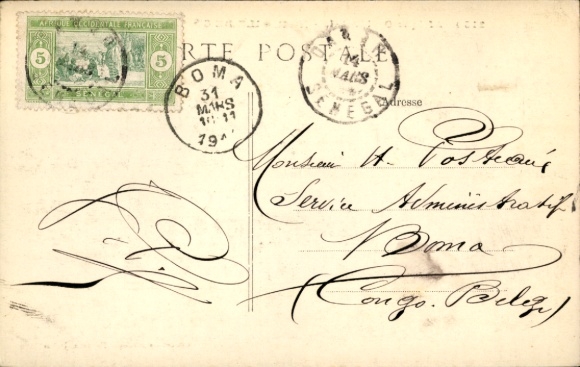 AFRIQUE OCCIDENTALE FRANÇAISE
5 5
CARTE POSTALE
BOMA
31
MARS
10-11
MARS
SENEGAL
Adresse
Monsieur H.
Service Administratif
Boma
(Congo. Belge)